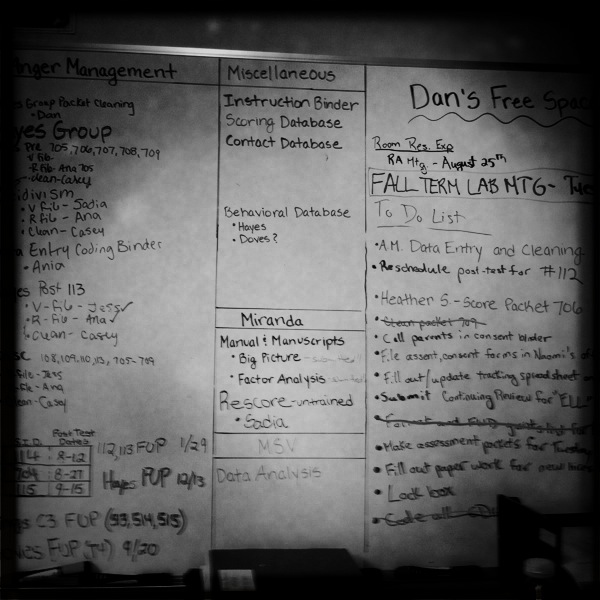 Anger Management
s Group Packet Cleaning
• Dan
yes Group
Pre 705, 706, 707, 708, 709
V Fib -
R Fib - Ana 705
- clean - Casey
dividism
• V Fib - Sadia
• R Fib - Ana
• Clean - Casey
a Entry Coding Binder
• Ania
es Post 113
• V-Fib - Jess ✓
• R-Fib - Ana ✓
• Clean - Casey
SC 108, 109, 110, 113, 705-709
File - Jess
- Fib - Ana
ean - Casey
S.I.D. Post Test Dates
114 : 8-12
704 : 8-27
115 9-15
112, 113 FUP 1/29
Hayes FUP 12/13
gs C3 FUP (S3, S14, S15)
FUP (T4) 9/20
Miscellaneous
Instruction Binder
Scoring Database
Contact Database
Behavioral Database
• Hayes
• Doves?
Miranda
Manual & Manuscripts
• Big Picture -
• Factor Analysis
Rescore - untrained
• Sadia
MSV
Data Analysis
Dan's Free Spac
Room Res. Exp
RA Mtg. - August 25th
FALL TERM LAB MTG - Tue
To Do List
• A.M. Data Entry and Cleaning
• Reschedule post-test for #112
• Heather S. - Score Packet 706
• Clean packet 709
• Call parents in consent binder
• File assent, consent forms in Naomi's
• Fill out/update tracking spreadsheet
• Submit Continuing Review for "ELL"
• Format and
• Make assessment packets for Tuesday
• Fill out paper work for new
• Lock box
• Code all